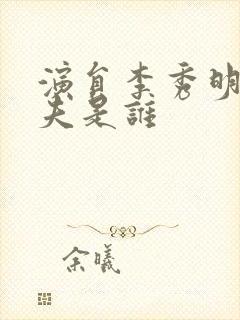 演員李秀明
夫是誰
余曦